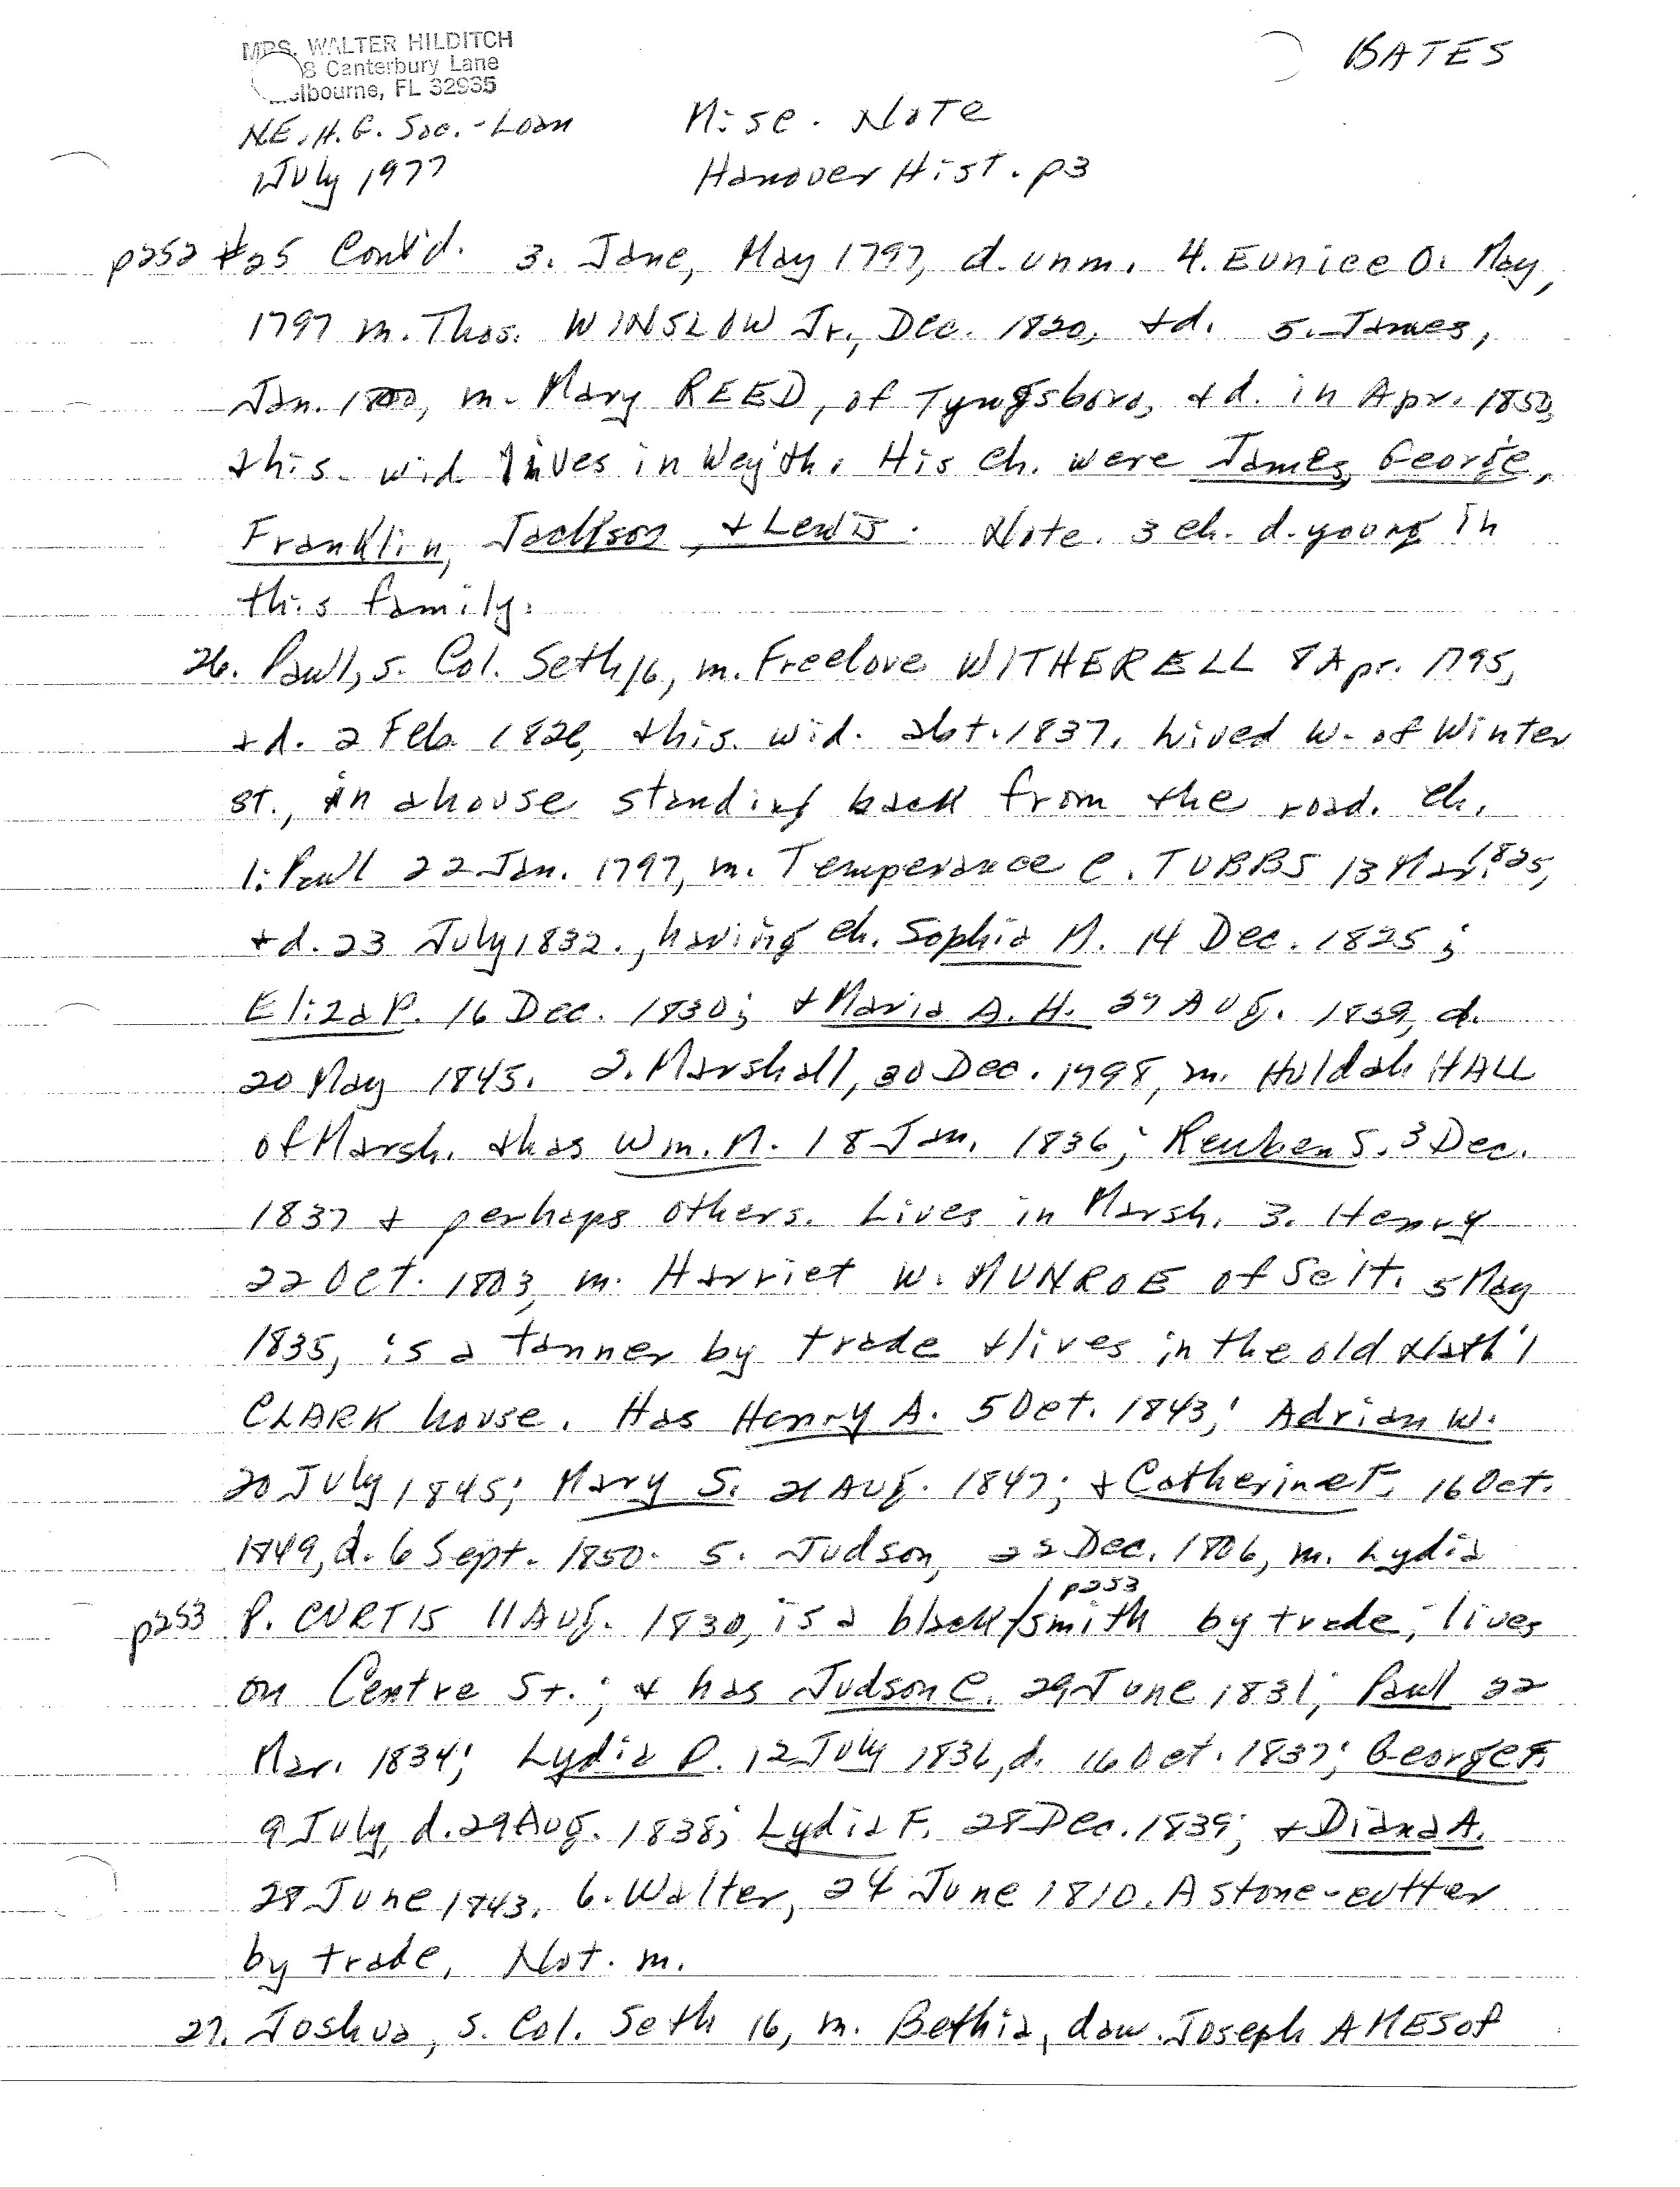 MRS. WALTER HILDITCH
8 Canterbury Lane
lbourne, FL 32935
BATES
N.E.H.G. Soc. - Loan
Misc. Note
July 1977
Hanover Hist. p3
p252 #25 Cont'd. 3. Jane, May 1797, d. unm. 4. Eunice O. May,
1797 m. Thos. WINSLOW Jr., Dec. 1820, + d. 5. James,
Jan. 1800, m. Mary REED, of Tyngsboro, + d. in Apr. 1850,
+ his wid lives in Wey'th. His ch. were James, George,
Franklin, Jackson, + Lewis. Note. 3 ch. d. young in
this family.
26. Paul, s. Col. Seth 16, m. Freelove WITHERELL 8 Apr. 1795,
+ d. 2 Feb. + his wid. abt. 1837. Lived W. of Winter
St., in a house standing back from the road. Ch.
1. Paul 22 Jan. 1797, m. Temperance C. TUBBS 13 Mar. 1825,
+ d. 23 July 1832., having ch. Sophia M. 14 Dec. 1825;
Eliza P. 16 Dec. 1830; + Maria A. H. Aug. 1839, d.
20 May 1845. 2. Marshall, 30 Dec. 1798, m. Huldah HALL
of Marsh. + has Wm. M. 18 Jan. 1836; Reuben S. 3 Dec.
1837 + perhaps others. Lives in Marsh. 3. Henry
22 Oct. 1803, m. Harriet W. MUNROE of Scit. 5 May
1835, is a tanner by trade + lives in the old Nath'l
CLARK house. Has Henry A. 5 Oct. 1843; Adrian W.
20 July 1845; Mary S. 21 Aug. 1847; + Catherine F. 16 Oct.
1849, d. 6 Sept. 1850. 5. Judson, 22 Dec. 1806, m. Lydia
p253 P. CURTIS 11 Aug. 1830, is a black/smith by trade; lives
p253
on Centre St.; + has Judson C. 29 June 1831; Paul 22
Mar. 1834; Lydia P. 12 July 1836, d. 16 Oct. 1837; George F.
9 July, d. 29 Aug. 1838; Lydia F. 28 Dec. 1839; + Diana A.
28 June 1843. 6. Walter, 24 June 1810. A stone-cutter
by trade, Not. m.
27. Joshua, s. Col. Seth 16, m. Bethia, dau. Joseph AMES of